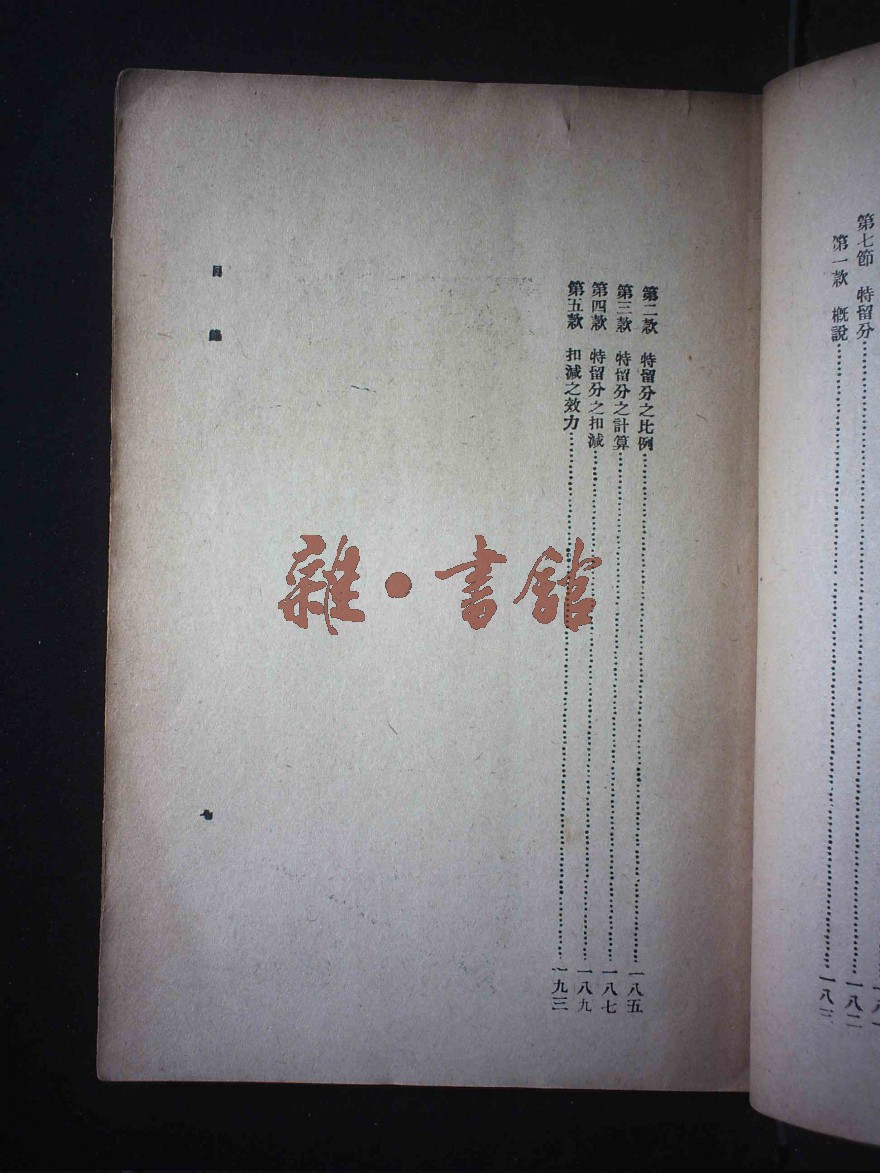 第七節　特留分……一八二
第一款　概說……一八三
第二款　特留分之比例……一八五
第三款　特留分之計算……一八七
第四款　特留分之扣減……一八九
第五款　扣減之效力……一九三
目錄
七
雜·書館